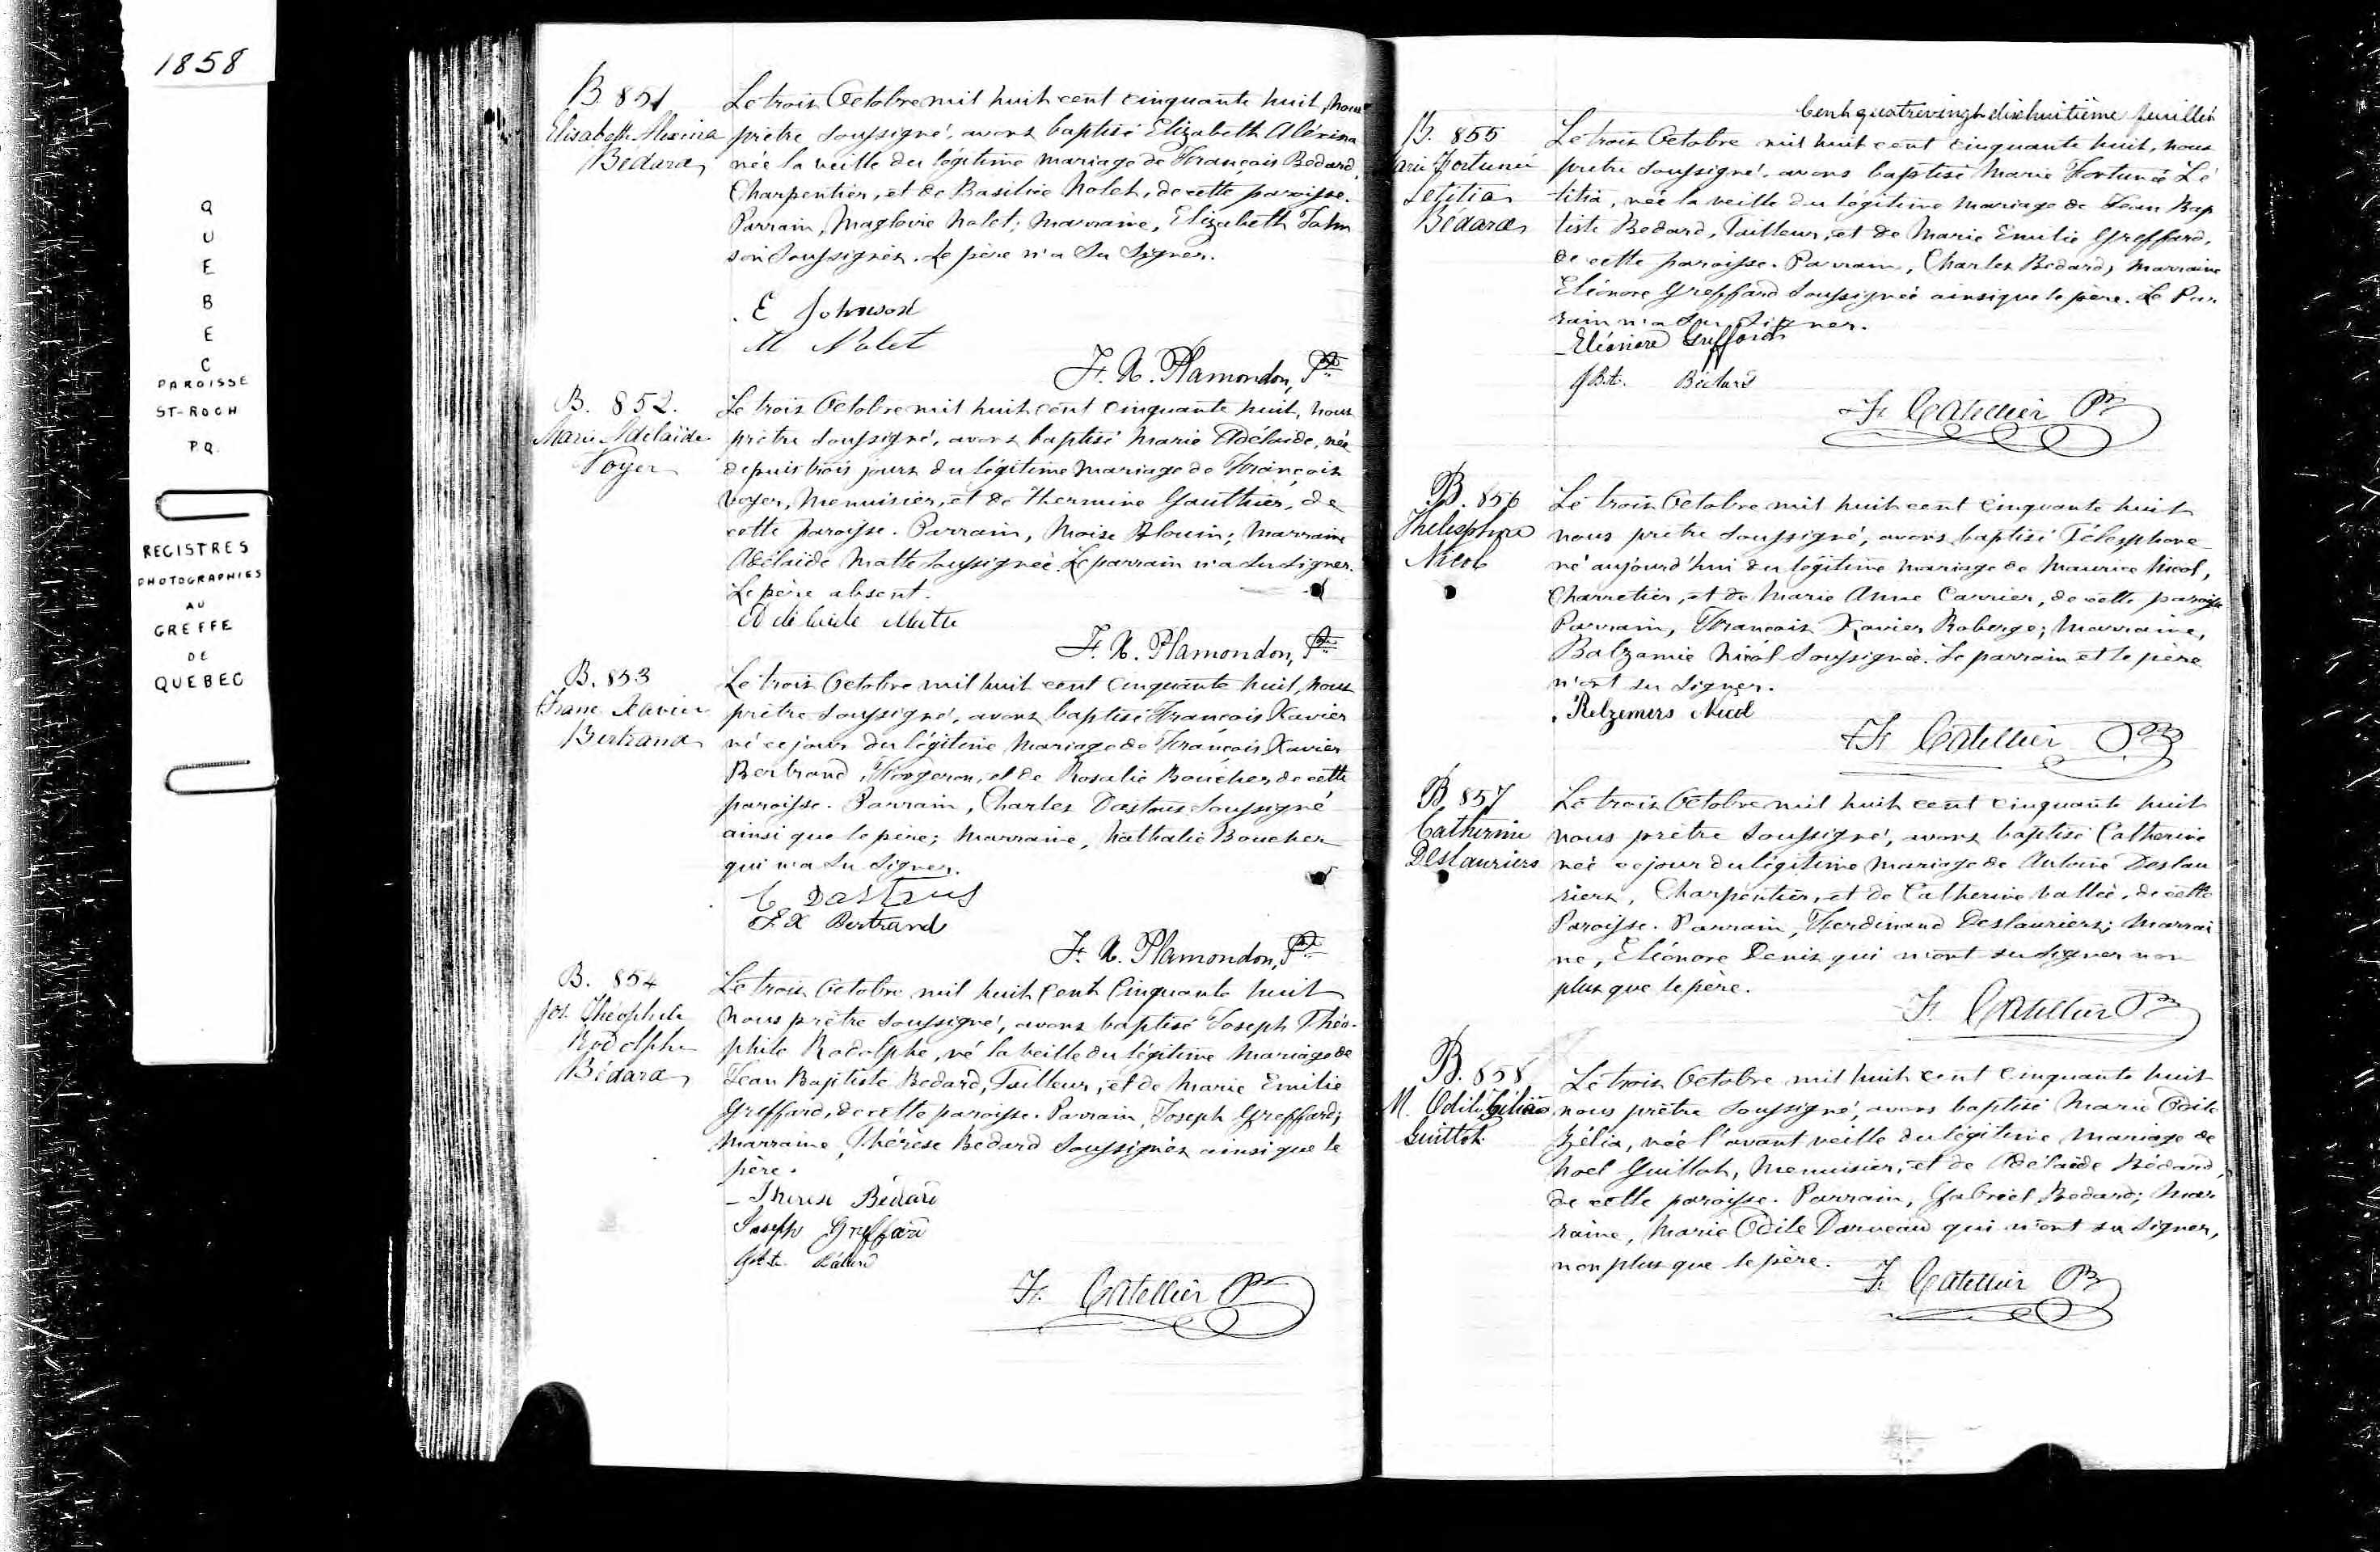 1858
QUEBEC
PAROISSE
ST-ROCH
P.Q.
REGISTRES
PHOTOGRAPHIES
AU
GREFFE
DE
QUEBEC
B. 851
Elisabeth Alexina
Bédard
Le trois Octobre mil huit cent cinquante huit, nous
prêtre soussigné, avons baptisé Elizabeth Aléxina
née la veille du légitime mariage de François Bedard,
Charpentier, et de Basilice Nolet, de cette paroisse.
Parrain, Magloire Nolet; marraine, Elizabeth John
son soussignés. Le père n'a su signer.
E Johnson
M Nolet
F. X. Plamondon, Ptre
B. 852.
Marie Adélaïde
Voyer
Le trois Octobre mil huit cent cinquante huit, nous
prêtre soussigné, avons baptisé Marie Adélaide, née
depuis trois jours du légitime mariage de François
Voyer, Menuisier, et de Hermine Gauthier, de
cette paroisse. Parrain, Moise Blouin; marraine
Adélaide Matte soussignée. Le parrain n'a su signer.
Le père absent.
Adelaide Matte
F. X. Plamondon, Ptre
B. 853
Franc Xavier
Bertrand
Le trois Octobre mil huit cent cinquante huit, nous
prêtre soussigné, avons baptisé François Xavier
né ce jour du légitime mariage de François Xavier
Bertrand, Forgeron, et de Rosalie Boucher, de cette
paroisse. Parrain, Charles Dastous soussigné
ainsi que le père; marraine, Nathalie Boucher
qui n'a su signer.
C Dastous
F. X Bertrand
F. X. Plamondon, Ptre
B. 854
Jos. Théophile
Rodolphe
Bédard
Le trois Octobre mil huit cent cinquante huit
nous prêtre soussigné, avons baptisé Joseph Théo-
phile Rodolphe, né la veille du légitime mariage de
Jean Baptiste Bedard, Tailleur, et de Marie Emilie
Greffard, de cette paroisse. Parrain, Joseph Greffard;
marraine, Thérèse Bedard soussignés ainsi que le
père.
Therese Bédard
Joseph Greffard
J Bte. Bédard
F. Catellier Ptre
Cent quatrevingt dixhuitième feuillet
B. 855
Marie Fortunée
Letitia
Bédard
Le trois Octobre mil huit cent cinquante huit, nous
prêtre soussigné, avons baptisé Marie Fortunée Lé
titia, née la veille du légitime mariage de Jean Bap
tiste Bedard, Tailleur, et de Marie Emilie Greffard,
de cette paroisse. Parrain, Charles Bedard, marraine
Eléonore Greffard soussignée ainsi que le père. Le Par
rain n'a su signer.
Eléonore Greffard
J Bte. Bédard
F. Catellier Ptre
B. 856
Thelesphore
Nicol
Le trois Octobre mil huit cent cinquante huit
nous prêtre soussigné, avons baptisé Télesphore
né aujourd'hui du légitime mariage de Maurice Nicol,
Charretier, et de Marie Anne Carrier, de cette paroisse
Parrain, François Xavier Roberge; marraine,
Balzamie Nicol soussignée. Le parrain et le père
n'ont su signer.
Nicol
F. Catellier Ptre
B. 857
Catherine
Deslauriers
Le trois Octobre mil huit cent cinquante huit
nous prêtre soussigné, avons baptisé Catherine
née ce jour du légitime mariage de Antoine Deslau
riers, Charpentier, et de Catherine Vallée, de cette
Paroisse. Parrain, Ferdinand Deslauriers; marrai
ne, Eléonore Denis qui n'ont su signer non
plus que le père.
F. Catellier Ptre
B. 858
M. Odile Gélia
Guillot
Le trois Octobre mil huit cent cinquante huit
nous prêtre soussigné, avons baptisé Marie Odile
Zélia, née l'avant veille du légitime mariage de
Noel Guillot, Menuisier, et de Adélaïde Bédard,
de cette paroisse. Parrain, Gabriel Bedard; mar
raine, Marie Odile Darveau qui n'ont su signer,
non plus que le père.
F. Catellier Ptre